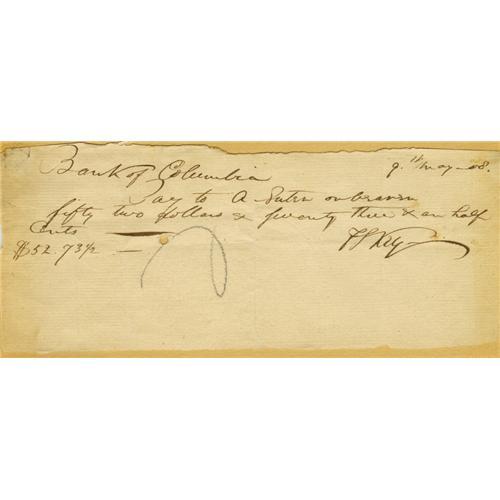 Bank of Columbia 9.th May -08.
Pay to A or bearer
fifty two dollars & seventy three & an half
Cents
$52.73½ —
F S Key